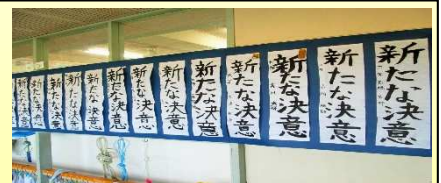 新たな決意
新たな決意
新たな決意
新たな決意
新たな決意
新たな決意
新たな決意
新たな決意
新たな決意
新たな決意
新たな決意
新たな決意
新たな決意